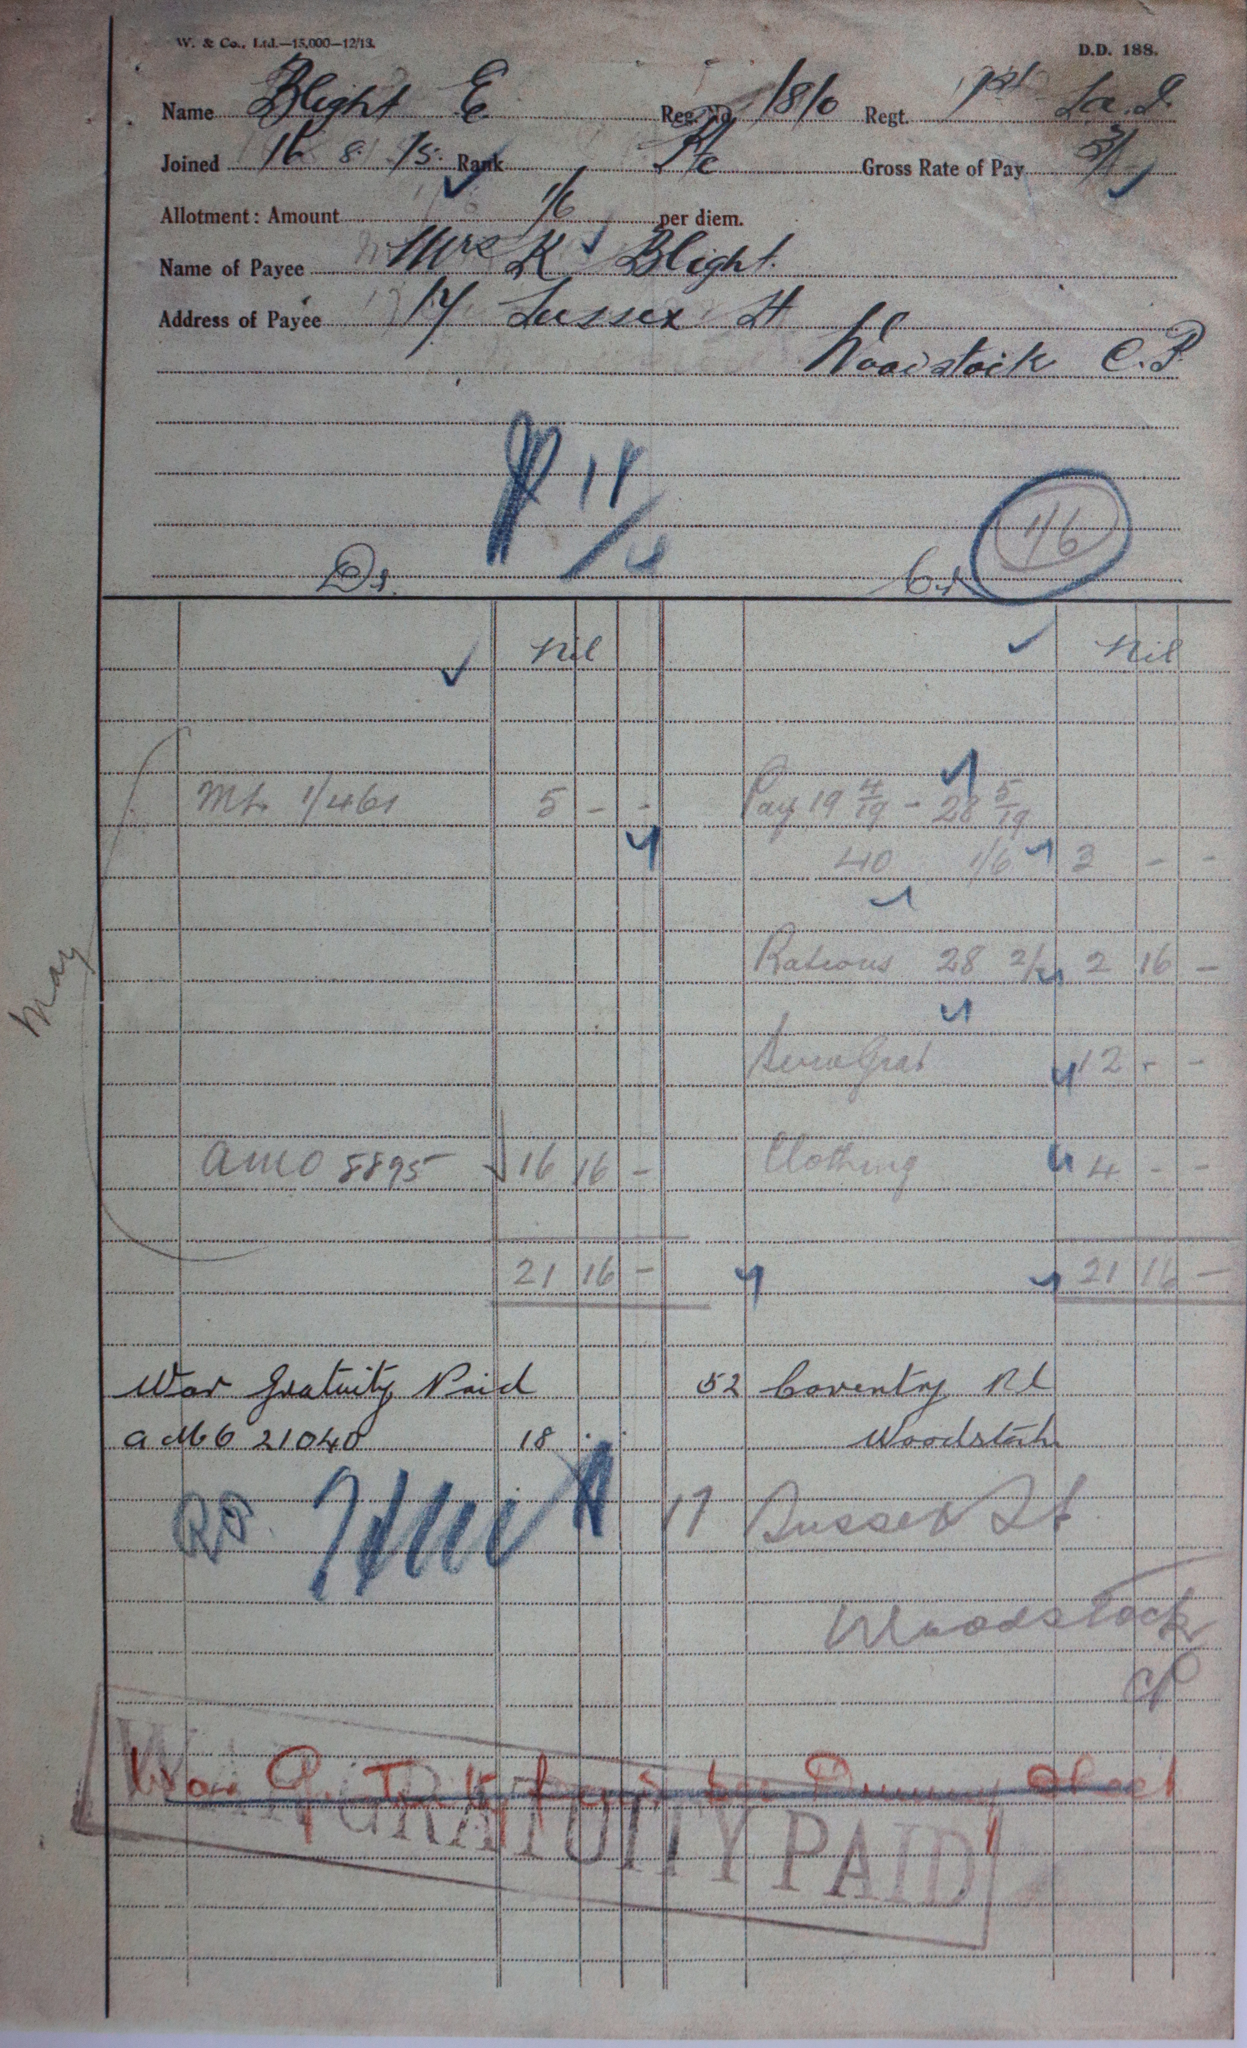 W. & Co., Ltd.—15,000—12/13.
D.D. 188.
Name Blight E Reg. No. 1810 Regt. 1st
Joined 16 8 15 Rank Pte Gross Rate of Pay
Allotment: Amount 1/6 per diem.
Name of Payee Mrs K Blight
Address of Payee 17 Sussex St
Woodstock C.P.
1/6
Dr. Cr
Nil Nil
5 - - Pay 19 4/19 - 28 5/19
40 1/6 3 - -
Rations 28 2/- 2 16 -
May
12 - -
AMO 8895 16 16 - Clothing 4 - -
21 16 - 21 16 -
War Gratuity Paid 52 Coventry Rd
a MO 21040 18 . . Woodstock
17 Sussex St
Woodstock
CP
War Gratuity paid per Dummy Sheet
WAR GRATUITY PAID